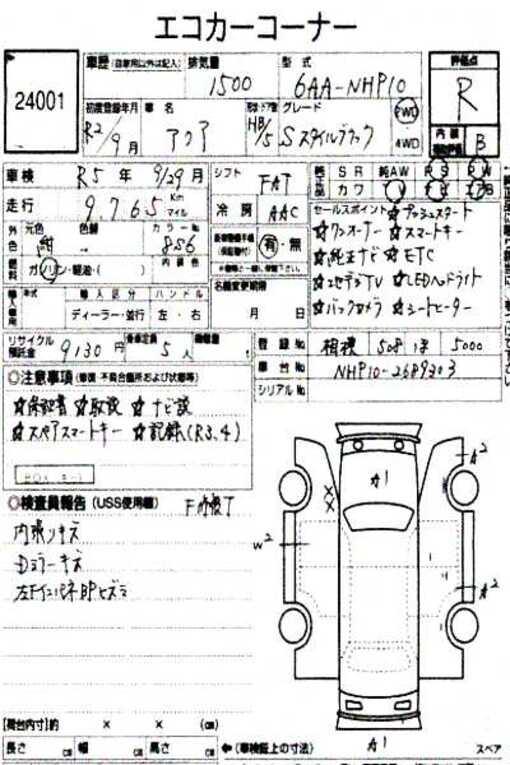 エコカーコーナー
24001
車歴 (自家用以外は記入) 排気量 1500 型式 6AA-NHP10
評価点 R
初度登録年月 R2/9月 車名 アクア HB/5 グレード Sスタイルブラック FWD 4WD
内装 B
車検 R5年 9/29月 シフト FAT
走行 9,765 Km マイル 冷房 AAC
S R 純AW P S P W
カワ
セールスポイント ☆プッシュスタート
☆ワンオーナー ☆スマートキー
☆純正ナビ ☆ETC
☆フルセグTV ☆LEDヘッドライト
☆バックカメラ ☆シートヒーター
外色 元色 紺 色替 カラーNo 8S6
有・無
燃料 ガソリン・軽油・( ) 内装色
名義変更期限 月 日
輸入区分 ハンドル
ディーラー・並行 左・右
リサイクル預託金 9130円 乗車定員 5人
登録No 相模 508 ほ 5000
車台No NHP10-2689303
シリアルNo
◎注意事項
☆保証書 ☆取説 ☆ナビ説
☆スペアスマートキー ☆記録(R3,4)
◎検査員報告 (USS使用欄)
内張りキズ
Dミラーキズ
A1
A2
W2
A2
A1
[荷台内寸]約 × × (cm)
長さ cm 幅 cm 高さ cm
(車検証上の寸法)
スペア